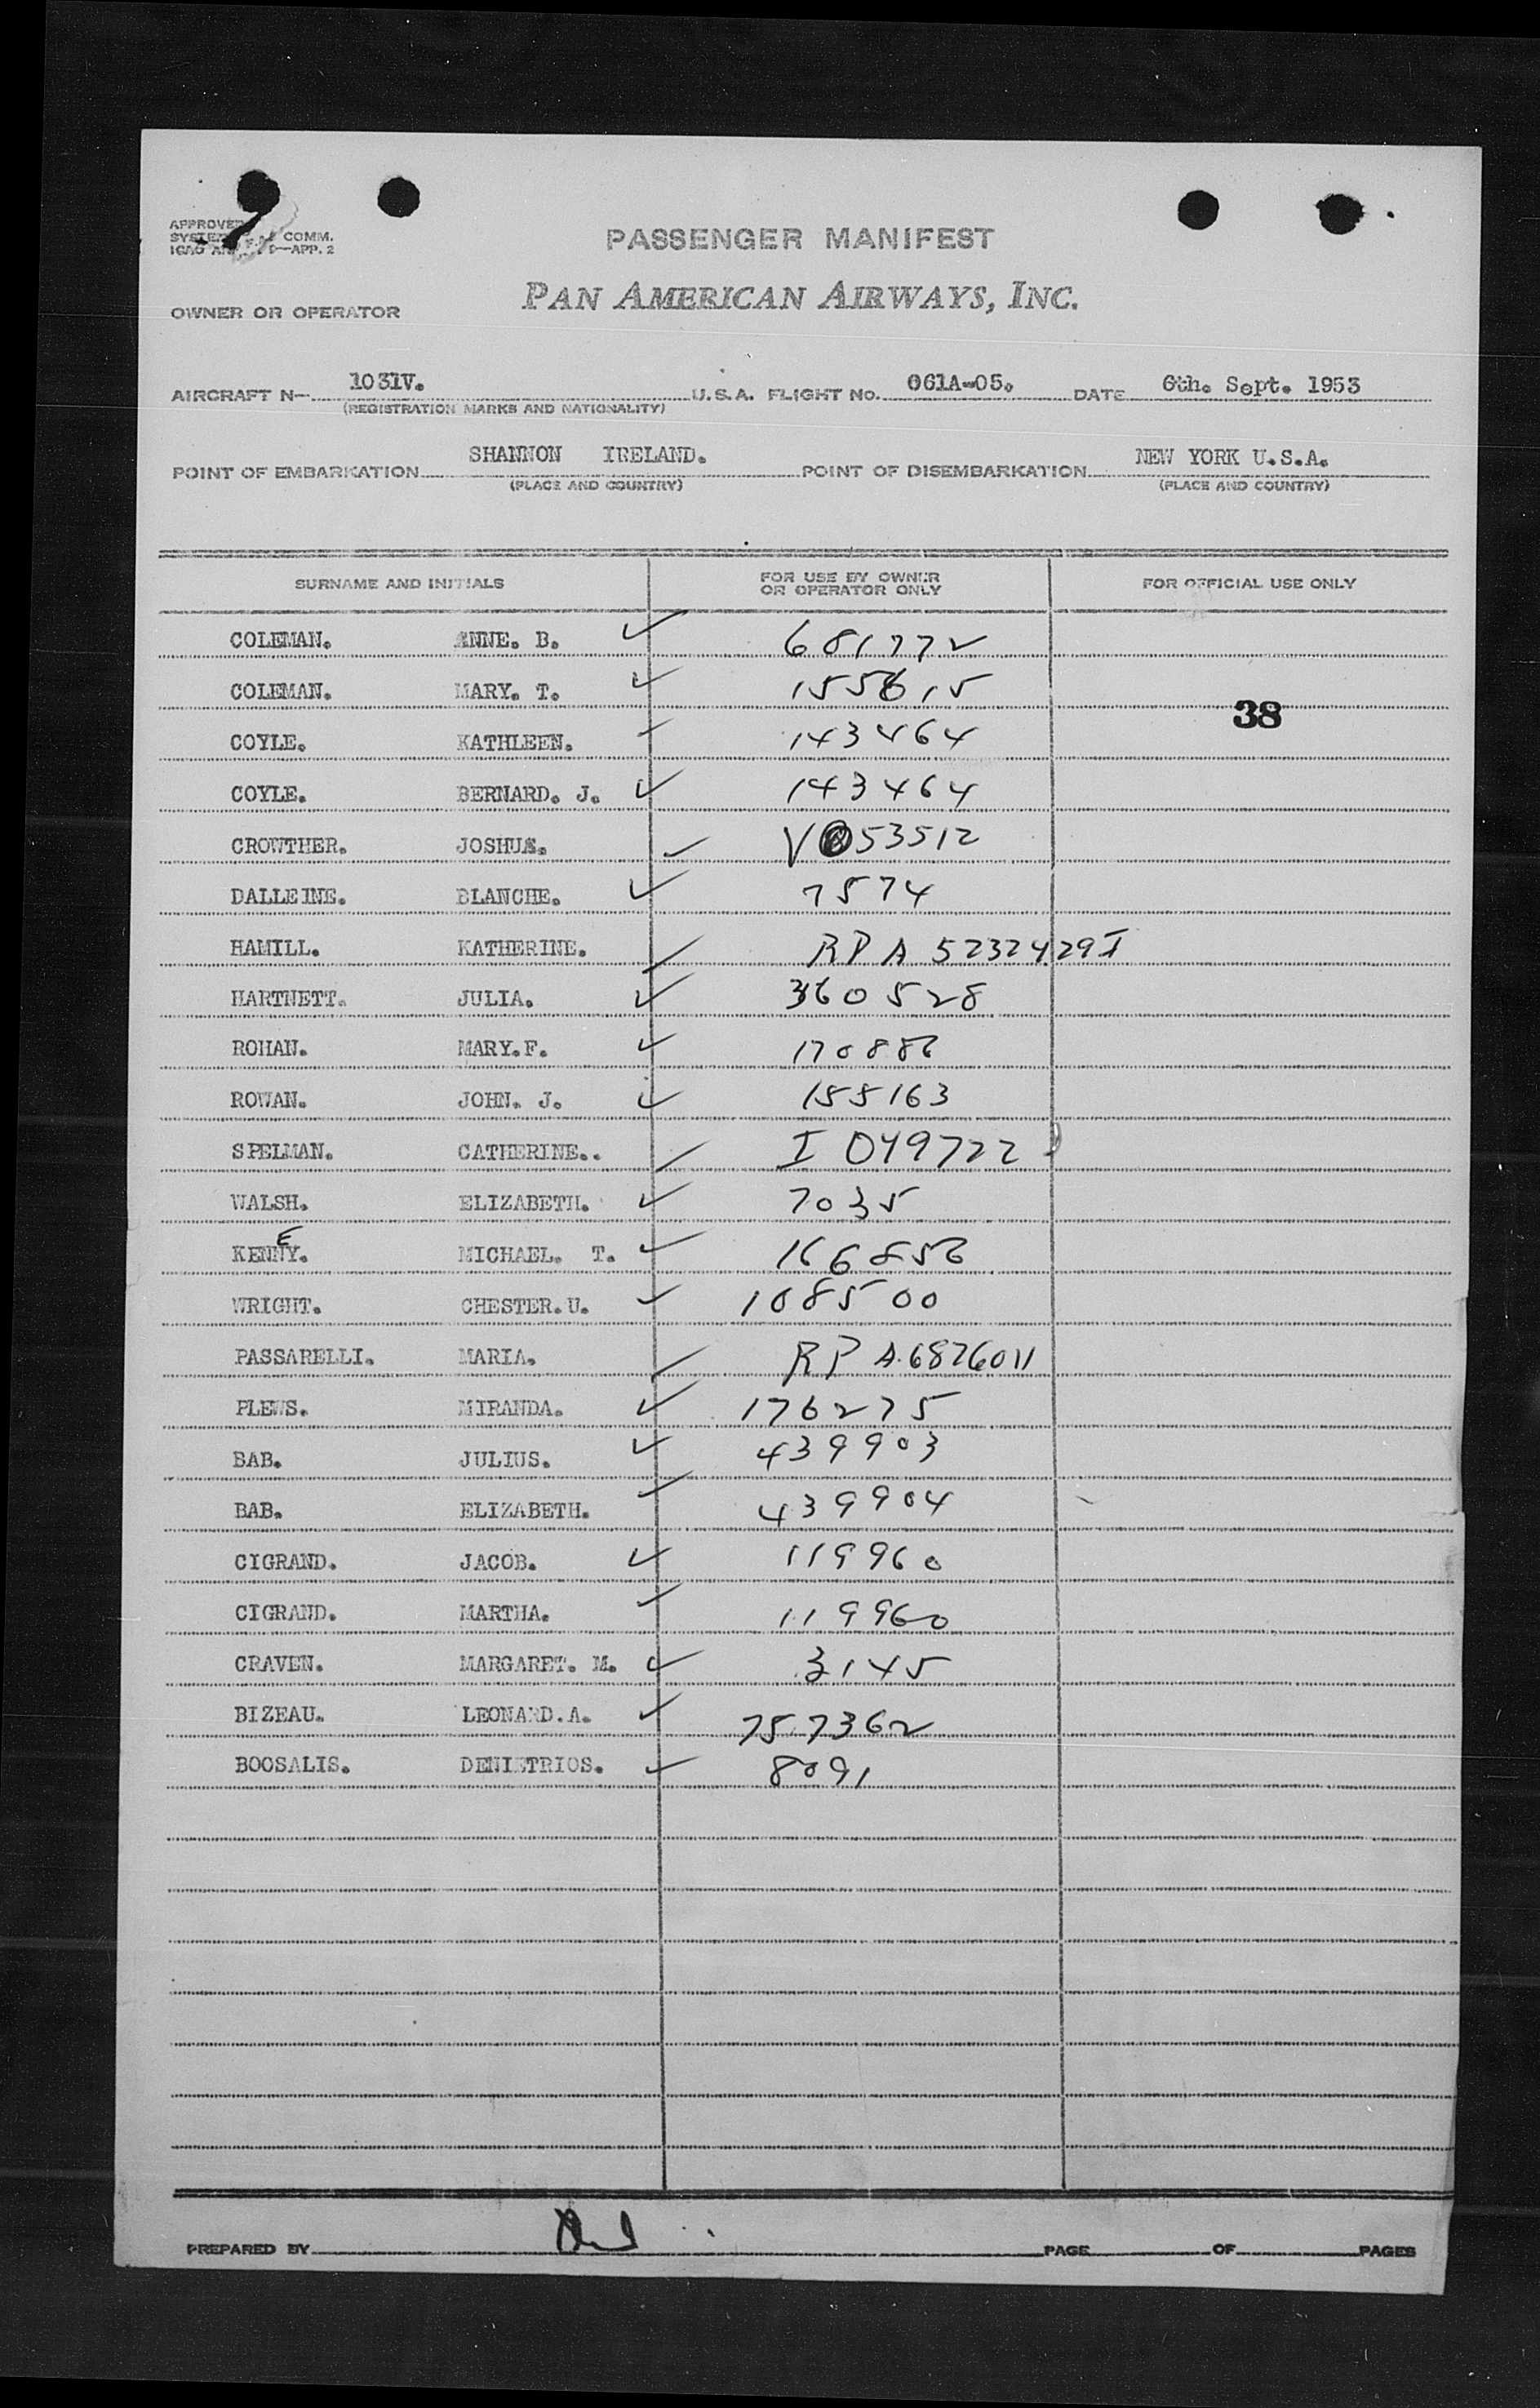 APPROVED
COMM.
APP. 2
PASSENGER MANIFEST
OWNER OR OPERATOR PAN AMERICAN AIRWAYS, INC.
AIRCRAFT N- 1031V. U.S.A. FLIGHT NO. 061A-05. DATE 6th. Sept. 1953
(REGISTRATION MARKS AND NATIONALITY)
POINT OF EMBARKATION SHANNON IRELAND. POINT OF DISEMBARKATION NEW YORK U.S.A.
(PLACE AND COUNTRY) (PLACE AND COUNTRY)
SURNAME AND INITIALS FOR USE BY OWNER OR OPERATOR ONLY FOR OFFICIAL USE ONLY
COLEMAN. ANNE. B. ✓ 681772
COLEMAN. MARY. T. ✓ 155615
38
COYLE. KATHLEEN. ✓ 143464
COYLE. BERNARD. J. ✓ 143464
CROWTHER. JOSHUA. ✓ V053512
DALLEINE. BLANCHE. ✓ 7574
HAMILL. KATHERINE. ✓ RPA 5232429I
HARTNETT. JULIA. ✓ 360528
ROHAN. MARY.F. ✓ 170886
ROWAN. JOHN. J. ✓ 155163
SPELMAN. CATHERINE.. ✓ I 049722
WALSH. ELIZABETH. ✓ 7035
KENNEY. MICHAEL. T. ✓ 166856
WRIGHT. CHESTER.U. ✓ 108500
PASSARELLI. MARIA. ✓ RP A.6826011
PLEWS. MIRANDA. ✓ 176275
BAB. JULIUS. ✓ 439903
BAB. ELIZABETH. ✓ 439904
CIGRAND. JACOB. ✓ 119960
CIGRAND. MARTHA. ✓ 119960
CRAVEN. MARGARET. M. ✓ 3145
BIZEAU. LEONARD.A. ✓ 757362
BOOSALIS. DENIETRIOS. ✓ 8091
PREPARED BY PAGE OF PAGES